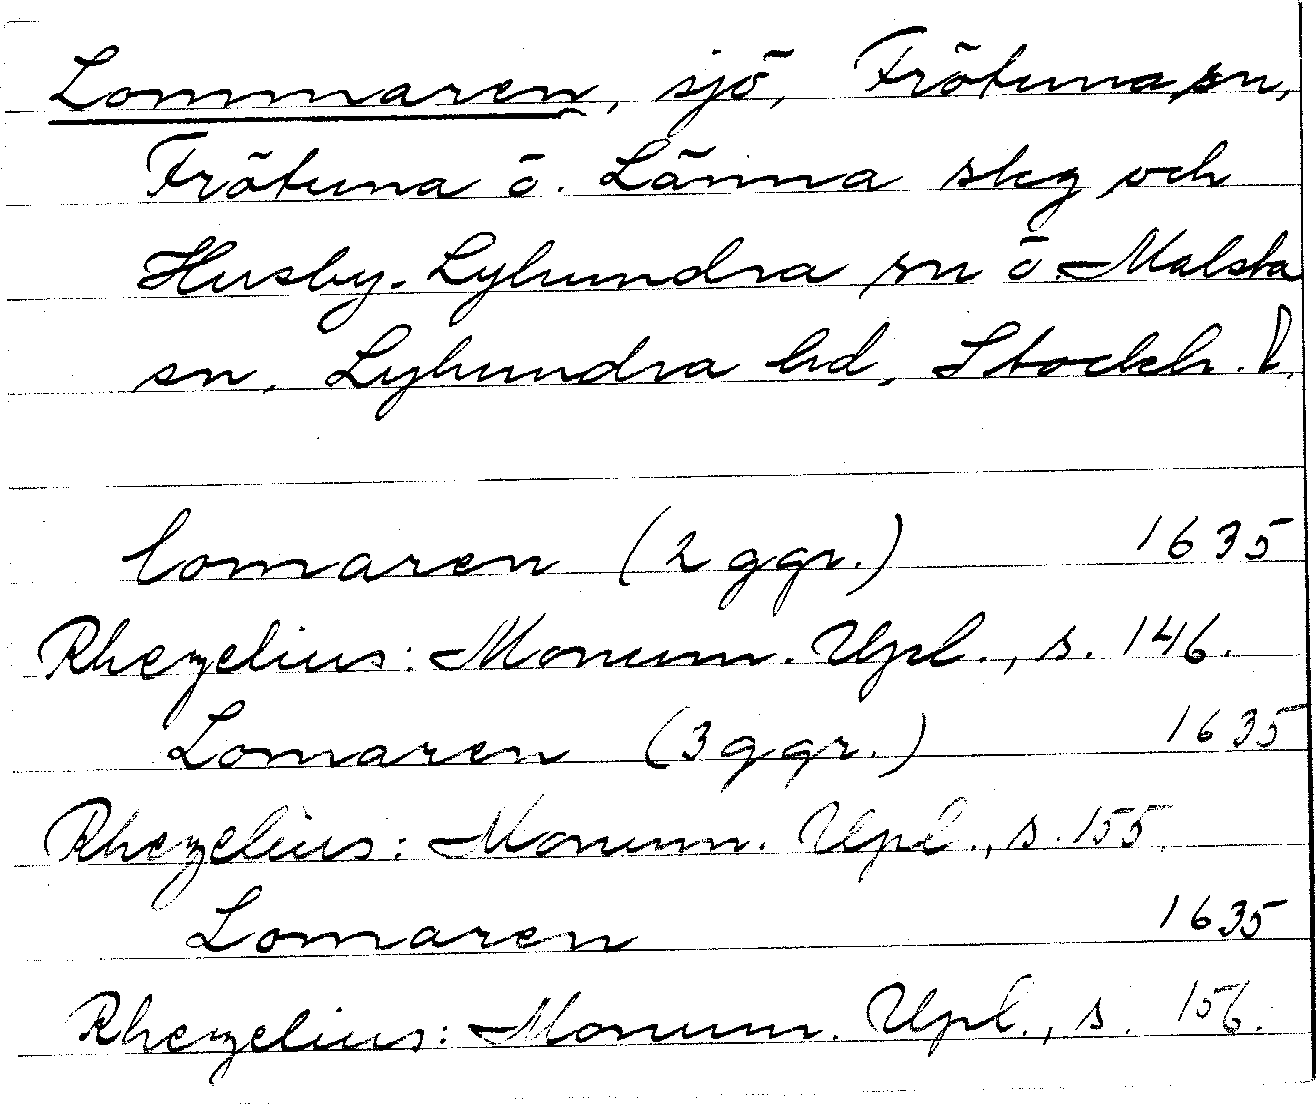 Lommaren, sjö, Frötuna sn,
Frötuna o. Länna skg och
Husby-Lyhundra sn o Malsta
sn, Lyhundra hd, Stockh. l.
lomaren (2 ggr.) 1635
Rhezelius: Monum. Upl., s. 146.
Lomaren (3 ggr.) 1635
Rhezelius: Monum. Upl., s. 155.
Lomaren 1635
Rhezelius: Monum. Upl., s. 156.